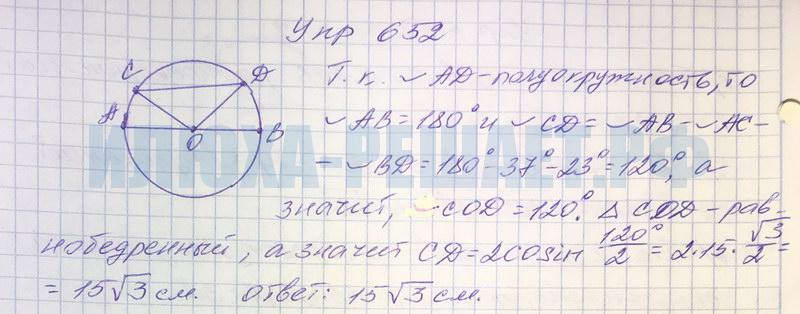 Упр 652
C D A B O
Т.к. ◡AD-полуокружность, то
◡AB=180° и ◡CD=◡AB-◡AC-
-◡BD=180°-37°-23°=120°, а
значит, ◡COD=120°. △COD-рав-
нобедренный, а значит CD=2COsin 120°/2=2.15.√3/2=
=15√3 см. ответ: 15√3 см.
ИЛЮХА-РЕШАЕТ.РФ